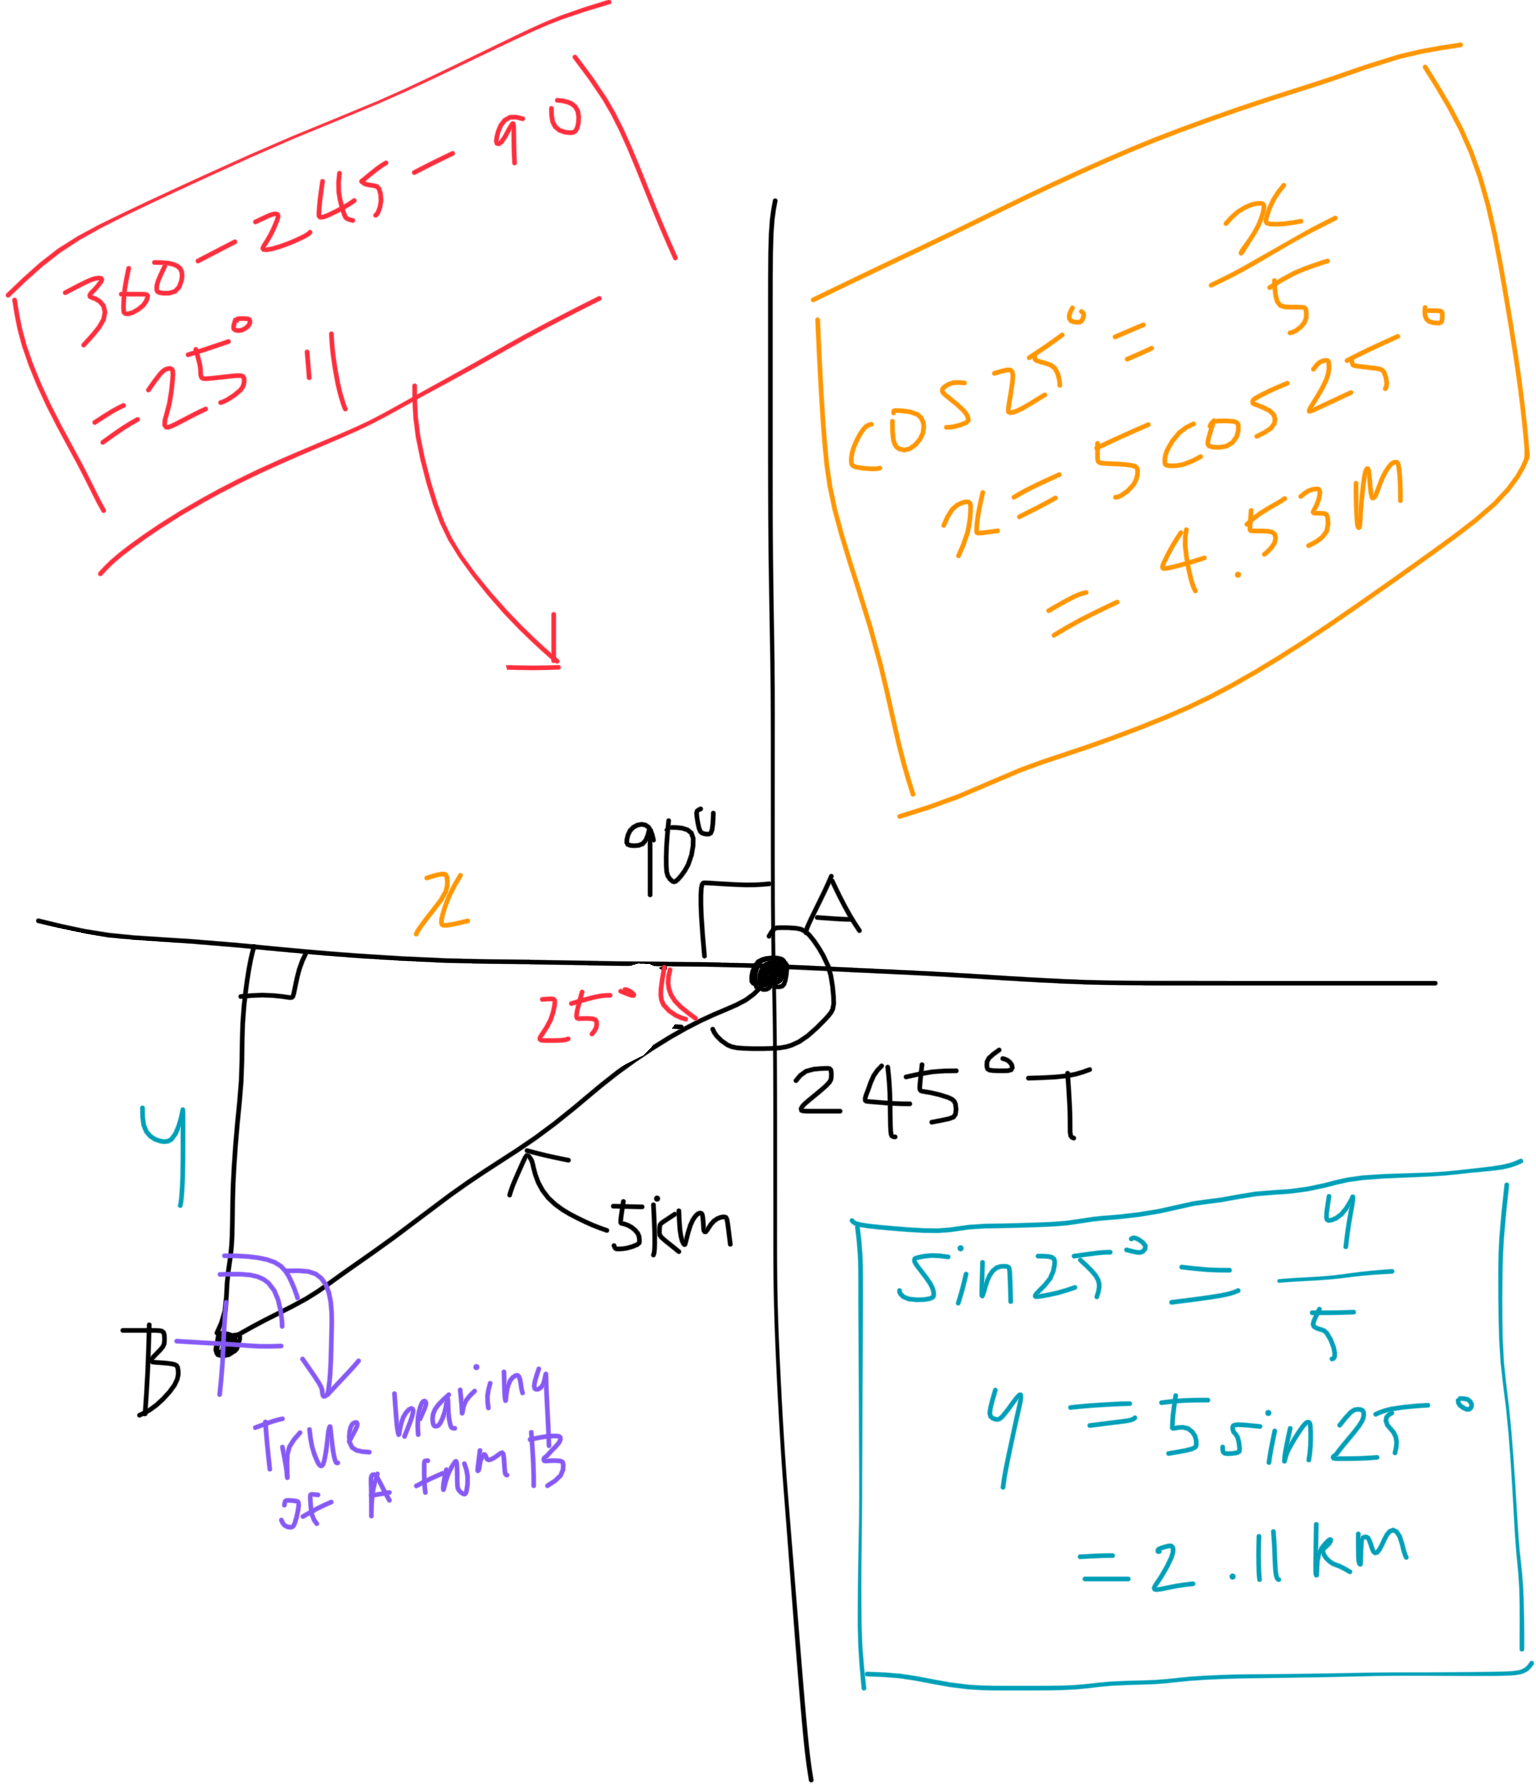 360-245-90
=25° //
cos25° = x/5
x = 5cos25°
= 4.53m
90°
x
A
25°
245°T
y
5km
B
True bearing
of A from B
sin25° = y/5
y = 5sin25°
= 2.11km